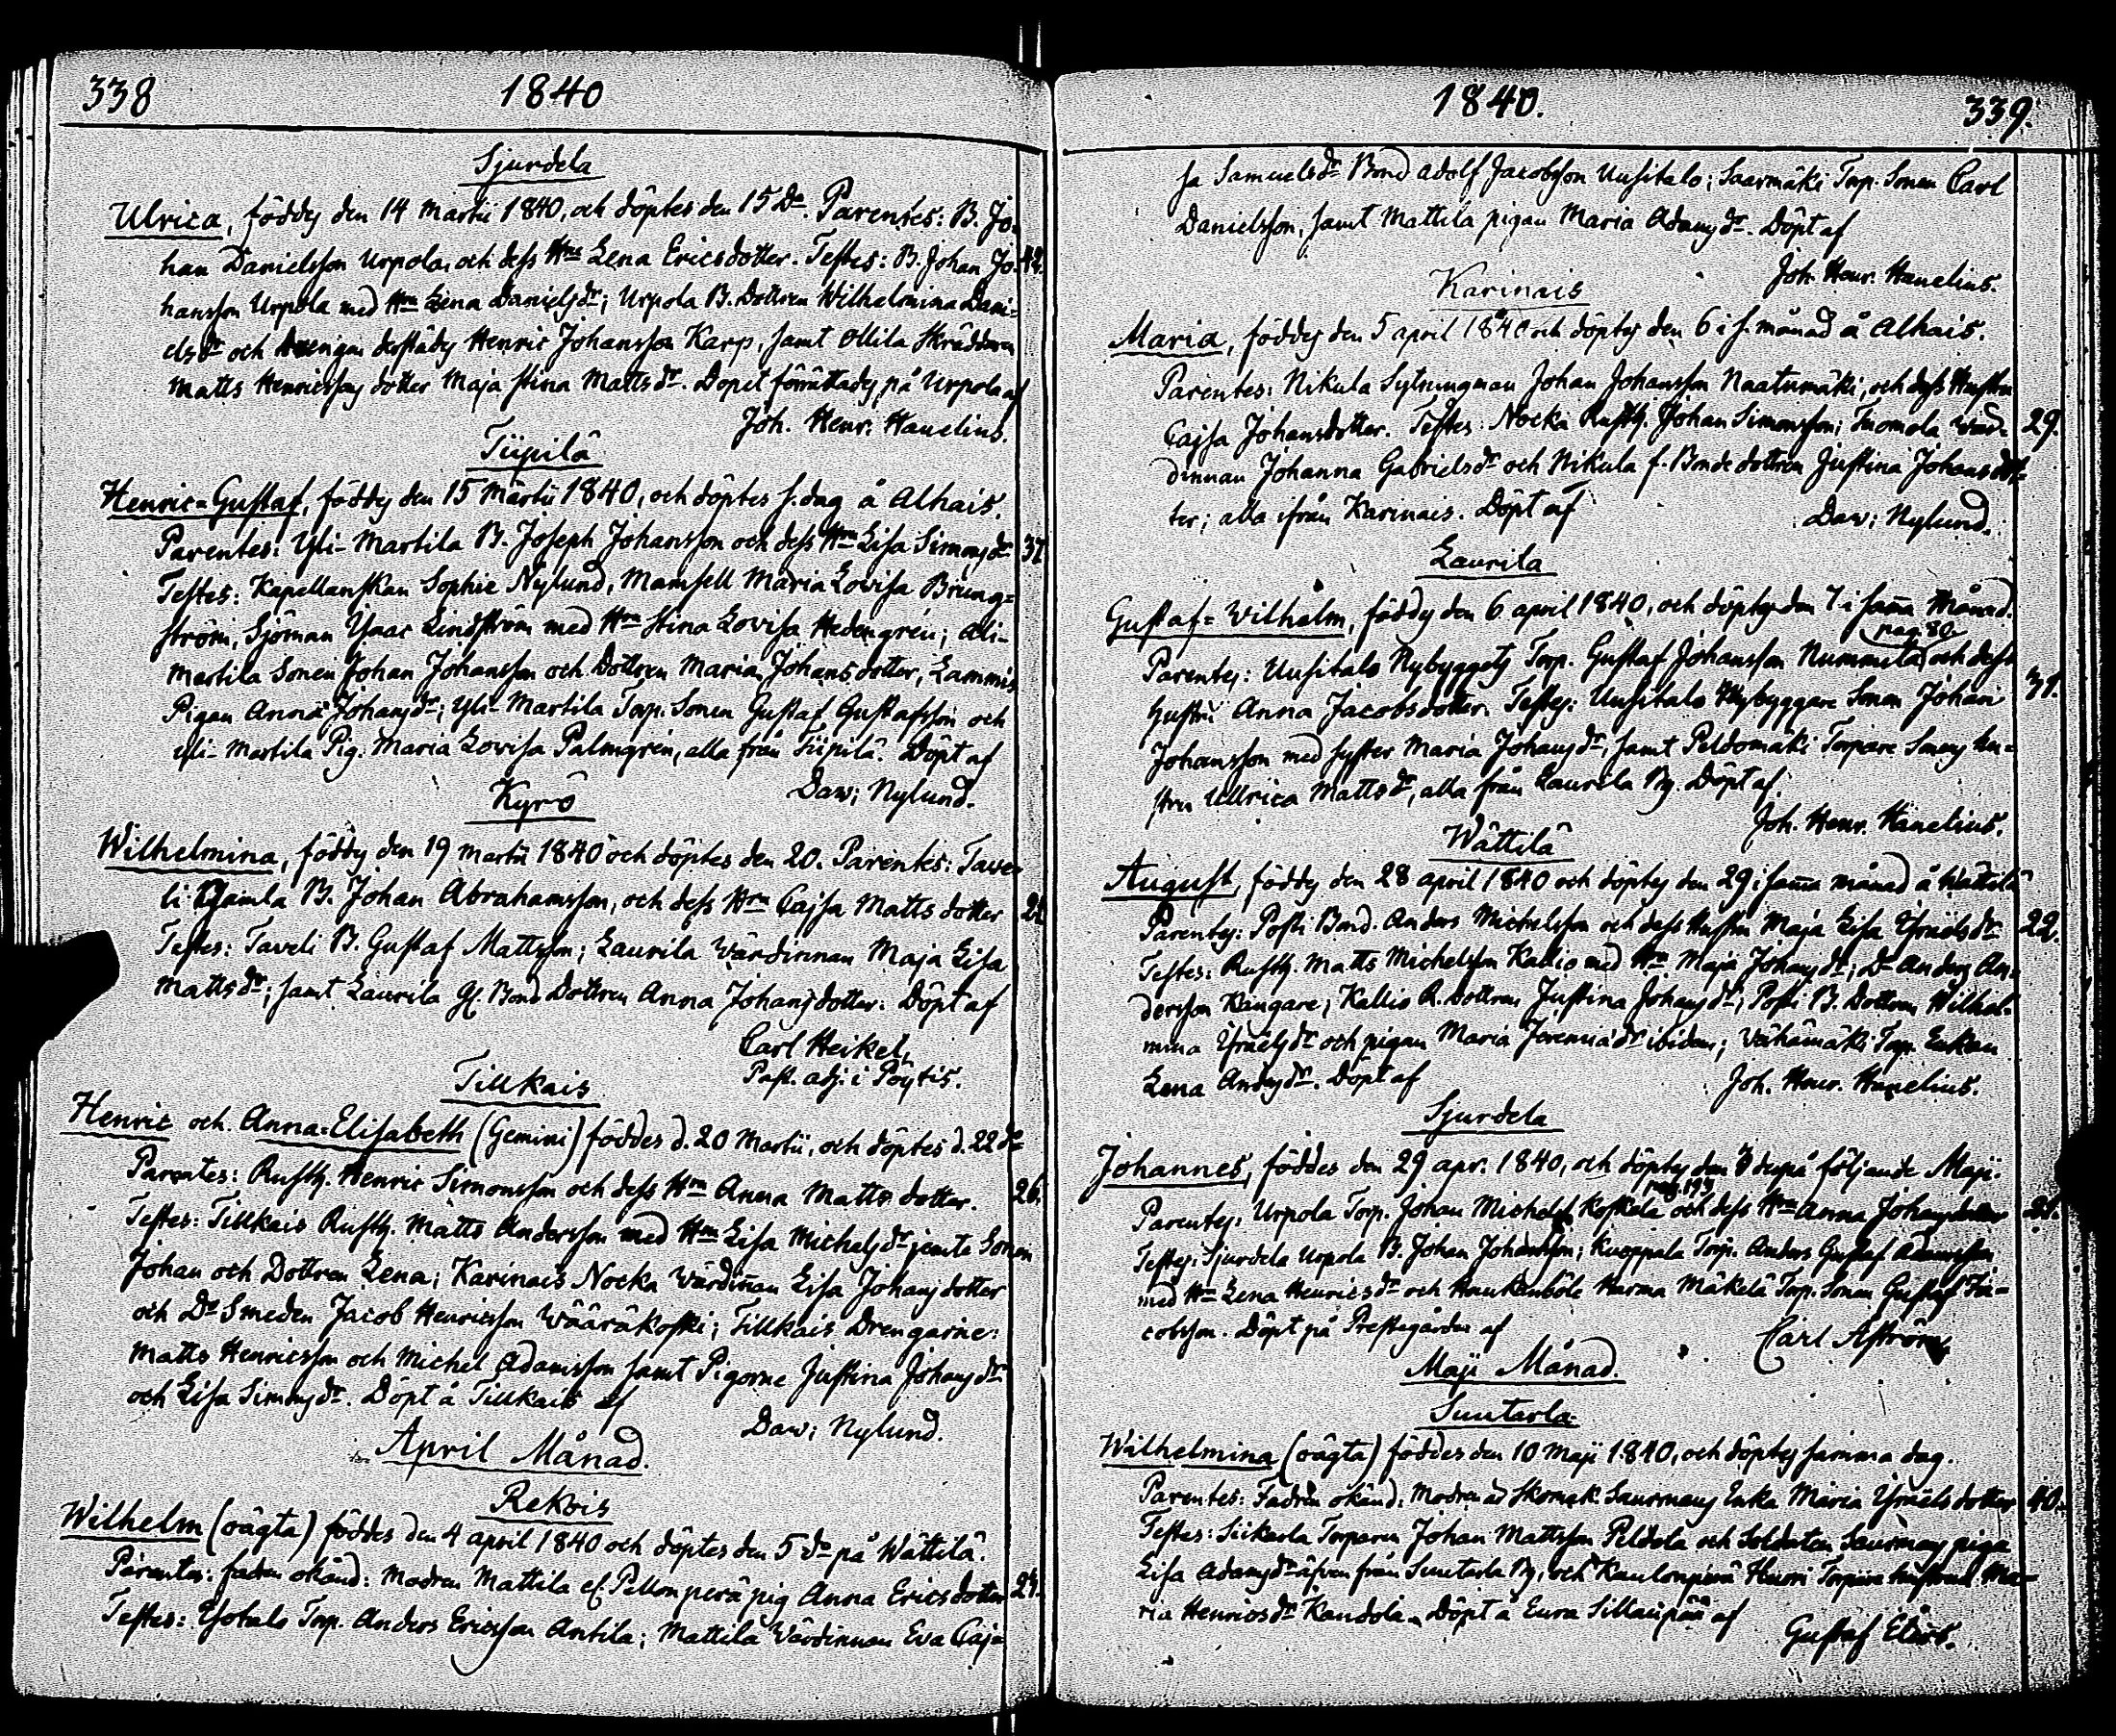 338
1840
Sjurdela
Ulrica, föddes den 14 Martii 1840, och döptes den 15 Do. Parentes: B. Jo-
han Danielsson Urpola, och dess Hru Lena Ericsdotter. Testes: B. Johan Jo- 42.
hansson Urpola med Hru Lena Danielsdr; Urpola B. Dottren Wilhelmina Dani-
elsdr och drengen derstädes Henric Johansson Karp, samt Ollila Skräddaren
Matts Henricssons dotter Maja Stina Mattsdr. Dopet förrättades på Urpola af
Joh. Henr. Hanelius.
Tüpilä
Henric=Gustaf, föddes den 15 Martii 1840, och döptes s. dag å Alhais.
Parentes: Yli-Martila B. Joseph Johansson och dess Hru Lisa Simonsdr 37
Testes: Kapellanskan Sophie Nylund, Mamsell Maria Lovisa Brung=
ström, Sjöman Isaac Lindström med Hru Stina Lovisa Hedengrén; Ali-
Martila Sonen Johan Johansson och Dottren Maria Johansdotter, Lammis
Pigan Anna Johansdr; Yli-Martila Torp. Sonen Gustaf Gustafsson och
Yli-Martila Pig. Maria Lovisa Palmgrén, alla från Tüpilä. Döpt af
Daw; Nylund.
Kyrö
Wilhelmina, föddes den 19 Martii 1840 och döptes den 20. Parentes: Tawe-
li Gamla B. Johan Abrahamsson, och dess Hru Cajsa Matts dotter
Testes: Taveli B. Gustaf Mattsson; Laurila Wärdinnan Maja Lisa
Mattsdr; samt Laurila Gl. Bond Dottren Anna Johansdotter. Döpt af
Carl Heikel,
Past. adj. i Pöytis.
Tillkais
Henric och Anna=Elisabeth (Gemini) föddes d. 20 Martii, och döptes d. 22 do
Parentes: Rusth. Henric Simonsson och dess Hru Anna Matts dotter. 26.
Testes: Tillkais Rusth. Matts Andersson med Hru Lisa Michelsdr jemte Sonen
Johan och Dottren Lena; Karinais Nocka Wärdinnan Lisa Johansdotter
och Do Smeden Jacob Henricsson Wääräkoski; Tillkais Drengarne:
Matts Henricsson och Michel Adamsson samt Pigorne Justina Johansdr
och Lisa Simonsdr. Döpt å Tillkais af
Daw; Nylund.
April Månad.
Rekois
Wilhelm (oägta) föddes den 4 april 1840 och döptes den 5 do på Wättilä.
Parentes: fadren okänd: Modren Mattila ef. Pellonperä pig Anna Ericsdotter 24.
Testes: Isotalo Torp. Anders Ericsson Antila; Mattila Wärdinnan Eva Caj=
1840.
339.
sa Samuelsdr Bond Adolf Jacobsson Uusitalo; Saarmäki Torp. Sonen Carl
Danielsson, samt Mattila pigan Maria Adamsdr. Döpt af
Joh. Henr. Hanelius.
Karinais
Maria, föddes den 5 april 1840 och döptes den 6 i s. månad å Alhais.
Parentes: Nikula Sytningman Johan Johansson Naatumäki, och dess Hustru
Cajsa Johansdotter. Testes: Nocka Rusth. Johan Simonsson; Tuomola Wär- 29.
dinnan Johanna Gabrielsdr och Nikula f. Bonde dottren Justina Johansdot-
ter; alla ifrån Karinais. Döpt af
Daw; Nylund.
Laurila
Gustaf=Wilhelm, föddes den 6 april 1840, och döptes den 7 i samma Månad.
pag. 80.
Parentes: Uusitalo Nybyggets Torp. Gustaf Johansson Nummila och dess
hustru Anna Jacobsdotter. Testes: Uusitalo Nybyggare Sonen Johan 31.
Johansson med syster Maria Johansdr, samt Peldomäki Torpare Sonens hu=
stru Ullrica Mattsdr, alla från Laurila By. Döpt af
Joh. Henr. Hanelius.
Wättilä
August, föddes den 28 april 1840 och döptes den 29 i samma månad å Wättilä
Parentes: Posti Bond. Anders Michelsson och dess Hustru Maja Lisa Israelsdr 22.
Testes: Rusth. Matts Michelsson Kallio med Hru Maja Johansdr; Do Anders An-
dersson Kangare; Kallio R. Dottren Justina Johansdr; Posti B. Dottren Wilhel-
mina Israelsdr och pigan Maria Jeremiædr ibidem; Wähämäki Torp. Enkan
Lena Andersdr. Döpt af
Joh. Henr. Hanelius.
Sjurdela
Johannes, föddes den 29 apr. 1840, och döptes den 3 derpå följande Maji.
pag. 193
Parentes: Urpola Torp. Johan Michelss Koskela och dess Hru Anna Johansdotter
Testes: Sjurdela Urpola B. Johan Johansson; Kuoppala Torp. Anders Gustaf
med Hru Lena Henricsdr och Haukenböle Harma Mäkelä Torp. Sonen Gustaf Ja-
cobsson. Döpt på Prestegården af
Carl Aström
Maji Månad.
Suutarla
Wilhelmina (oägta) föddes den 10 Maji 1840, och döptes samma dag.
Parentes: Fadren okänd: Modren Skomak. Saurmans Enka Maria Israelsdotter 40.
Testes: Siikarla Torparen Johan Mattsson Peldola och Soldaten Saurmans piga
Lisa Adamsdr äfven från Suutarla By, och Kaulonperä Huori Torpare hustrun Ma-
ria Henricsdr Kandola. Döpt å Eura Sillanpää af
Gustaf Elers.